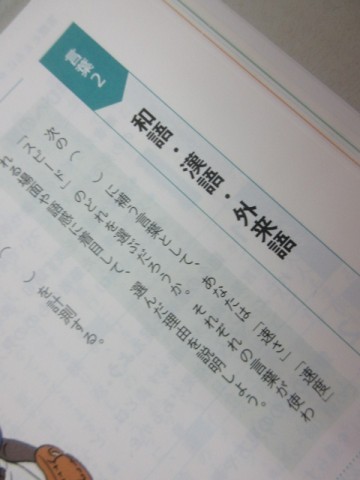 言葉2
和語・漢語・外来語
次の(　)に補う言葉として、あなたは「速さ」「速度」
「スピード」のどれを選ぶだろうか。それぞれの言葉が使わ
れる場面や語感に着目して、選んだ理由を説明しよう。
(　)を計測する。